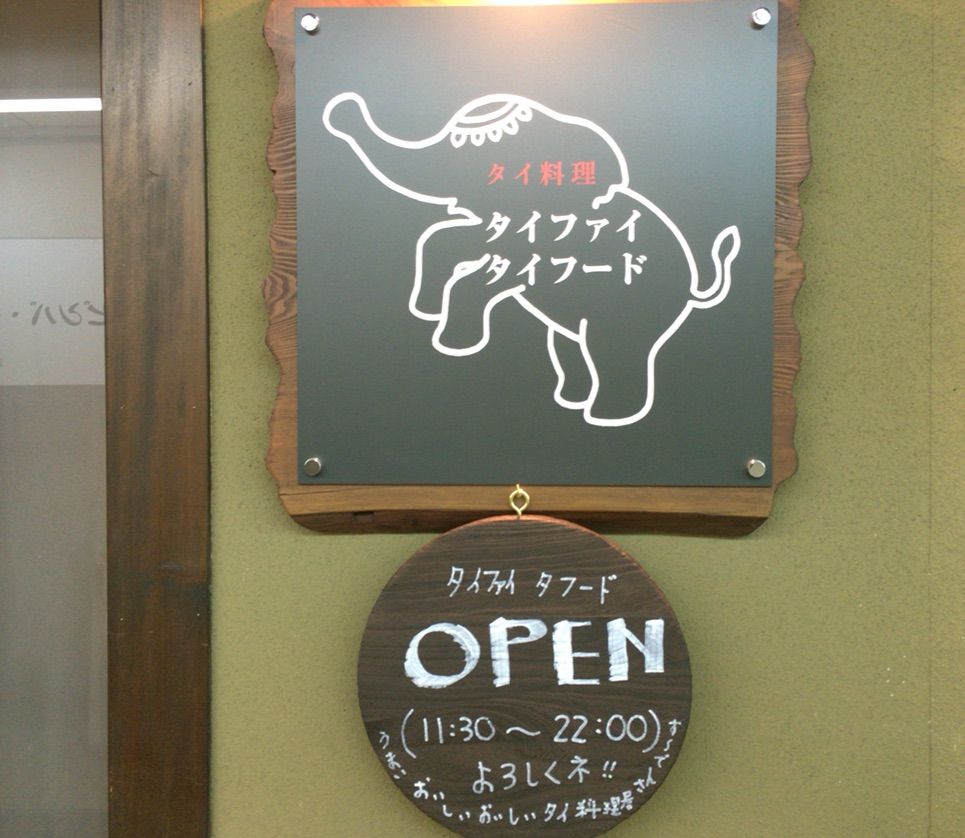 タイ料理
タイファイ
タイフード
タイファイ タフード
OPEN
(11:30〜22:00)
よろしくネ!!
うまい おいしいおいしいタイ料理屋さんで